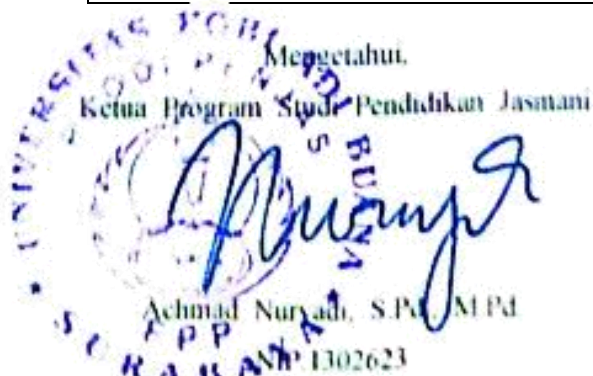 Mengetahui,
Ketua Program Studi Pendidikan Jasmani
Achmad Nuryadi, S.Pd., M.Pd.
NIP.1302623
UNIVERSITAS BUANA
SURABAYA